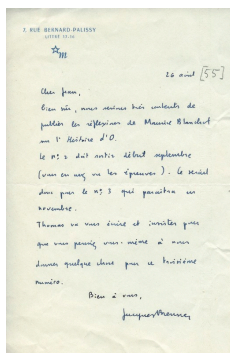 7, RUE BERNARD-PALISSY
LITTRÉ 17-16
m
26 août [55]
Cher Jean,
bien sûr, nous serions très contents de
publier les réflexions de Maurice Blanchot
sur l'Histoire d'O.
Le n° 2 doit sortir début septembre
(vous en avez vu les épreuves). Ce serait
donc pour le n° 3 qui paraîtra en
novembre.
Thomas va vous écrire et insister pour
que vous pensiez vous-même à nous
donner quelque chose pour ce troisième
numéro.
Bien à vous,
Jacques Brenner